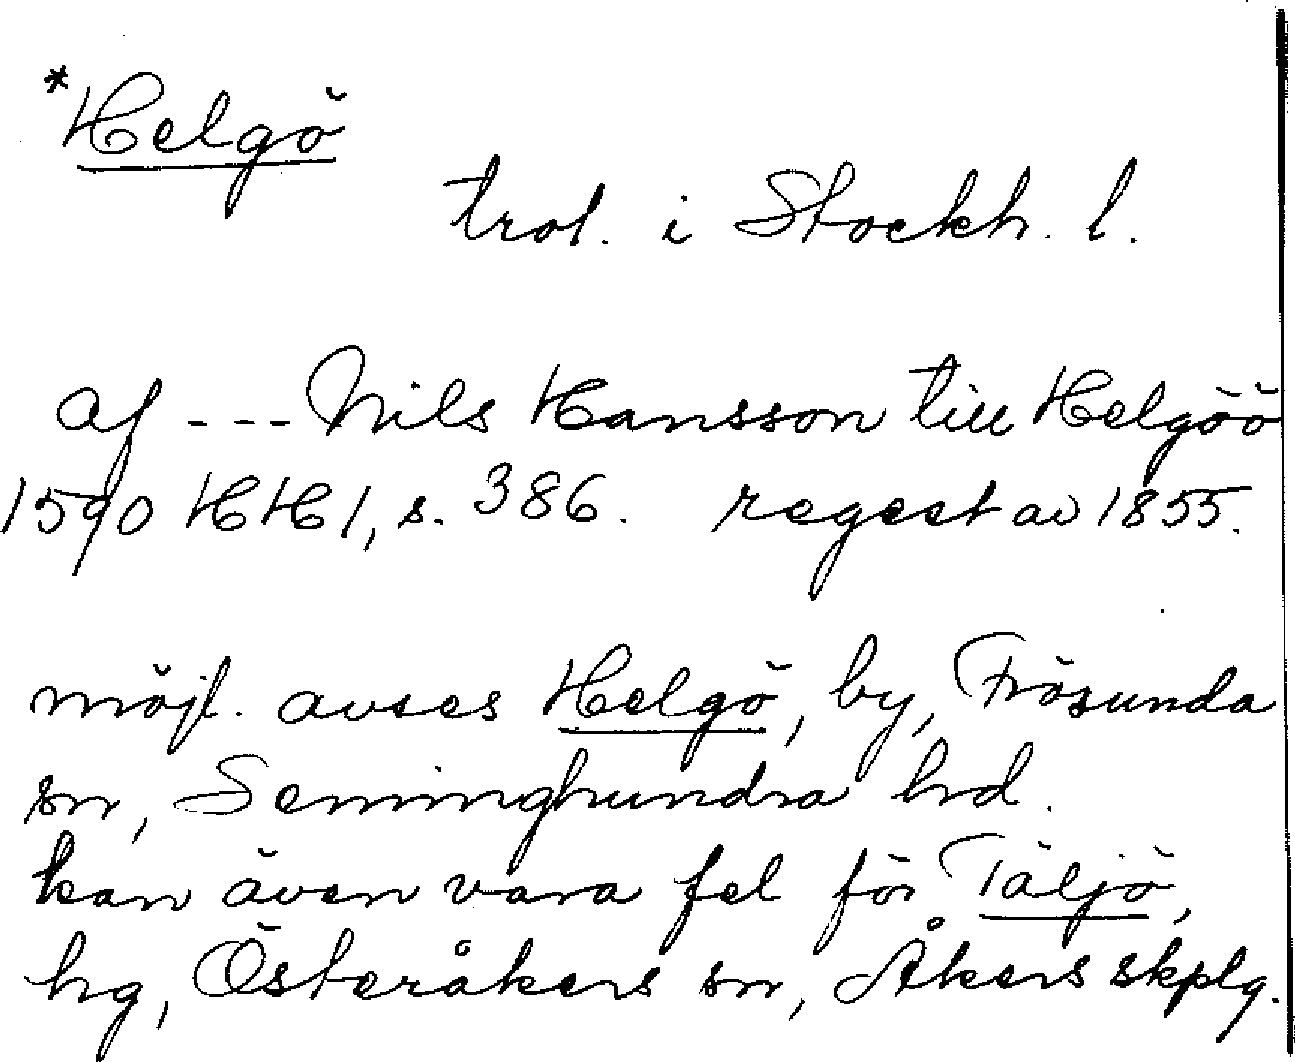 *Helgö
trol. i Stockh. l.
af --- Nils Hansson till Helgöö
1590 HH 1, s. 386. regest av 1855.
möjl. avses Helgö, by, Frösunda
sn, Seminghundra hd.
kan även vara fel för Täljö,
hg, Österåkers sn, Åkers skplg.